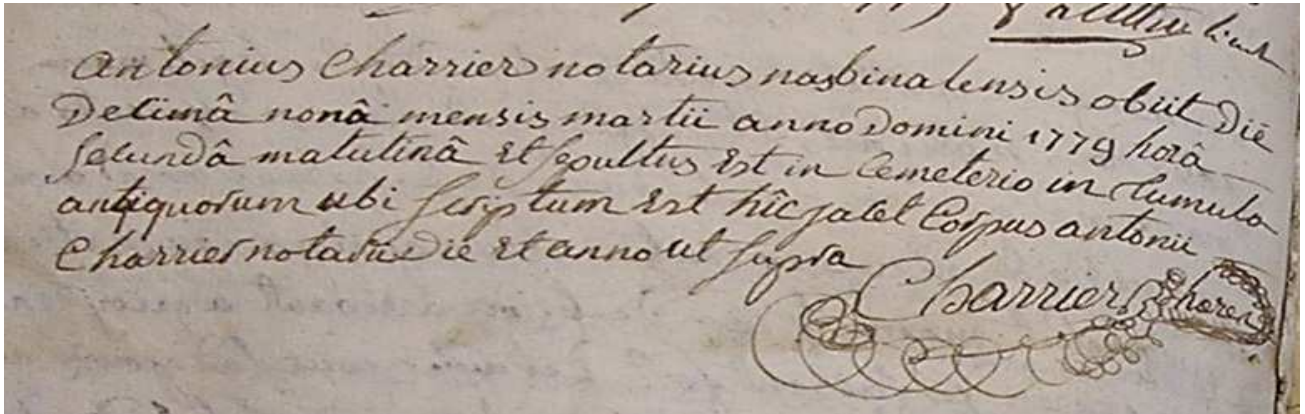 antonius Charrier notarius nasbinalensis obiit Die
Decimâ nonâ mensis martii anno Domini 1779 horâ
secundâ matutinâ et sepultus est in Cemeterio in tumulo
antiquorum ubi scriptum est hîc jacet Corpus antonii
Charrier notarii Die et anno ut supra
Charrier heres